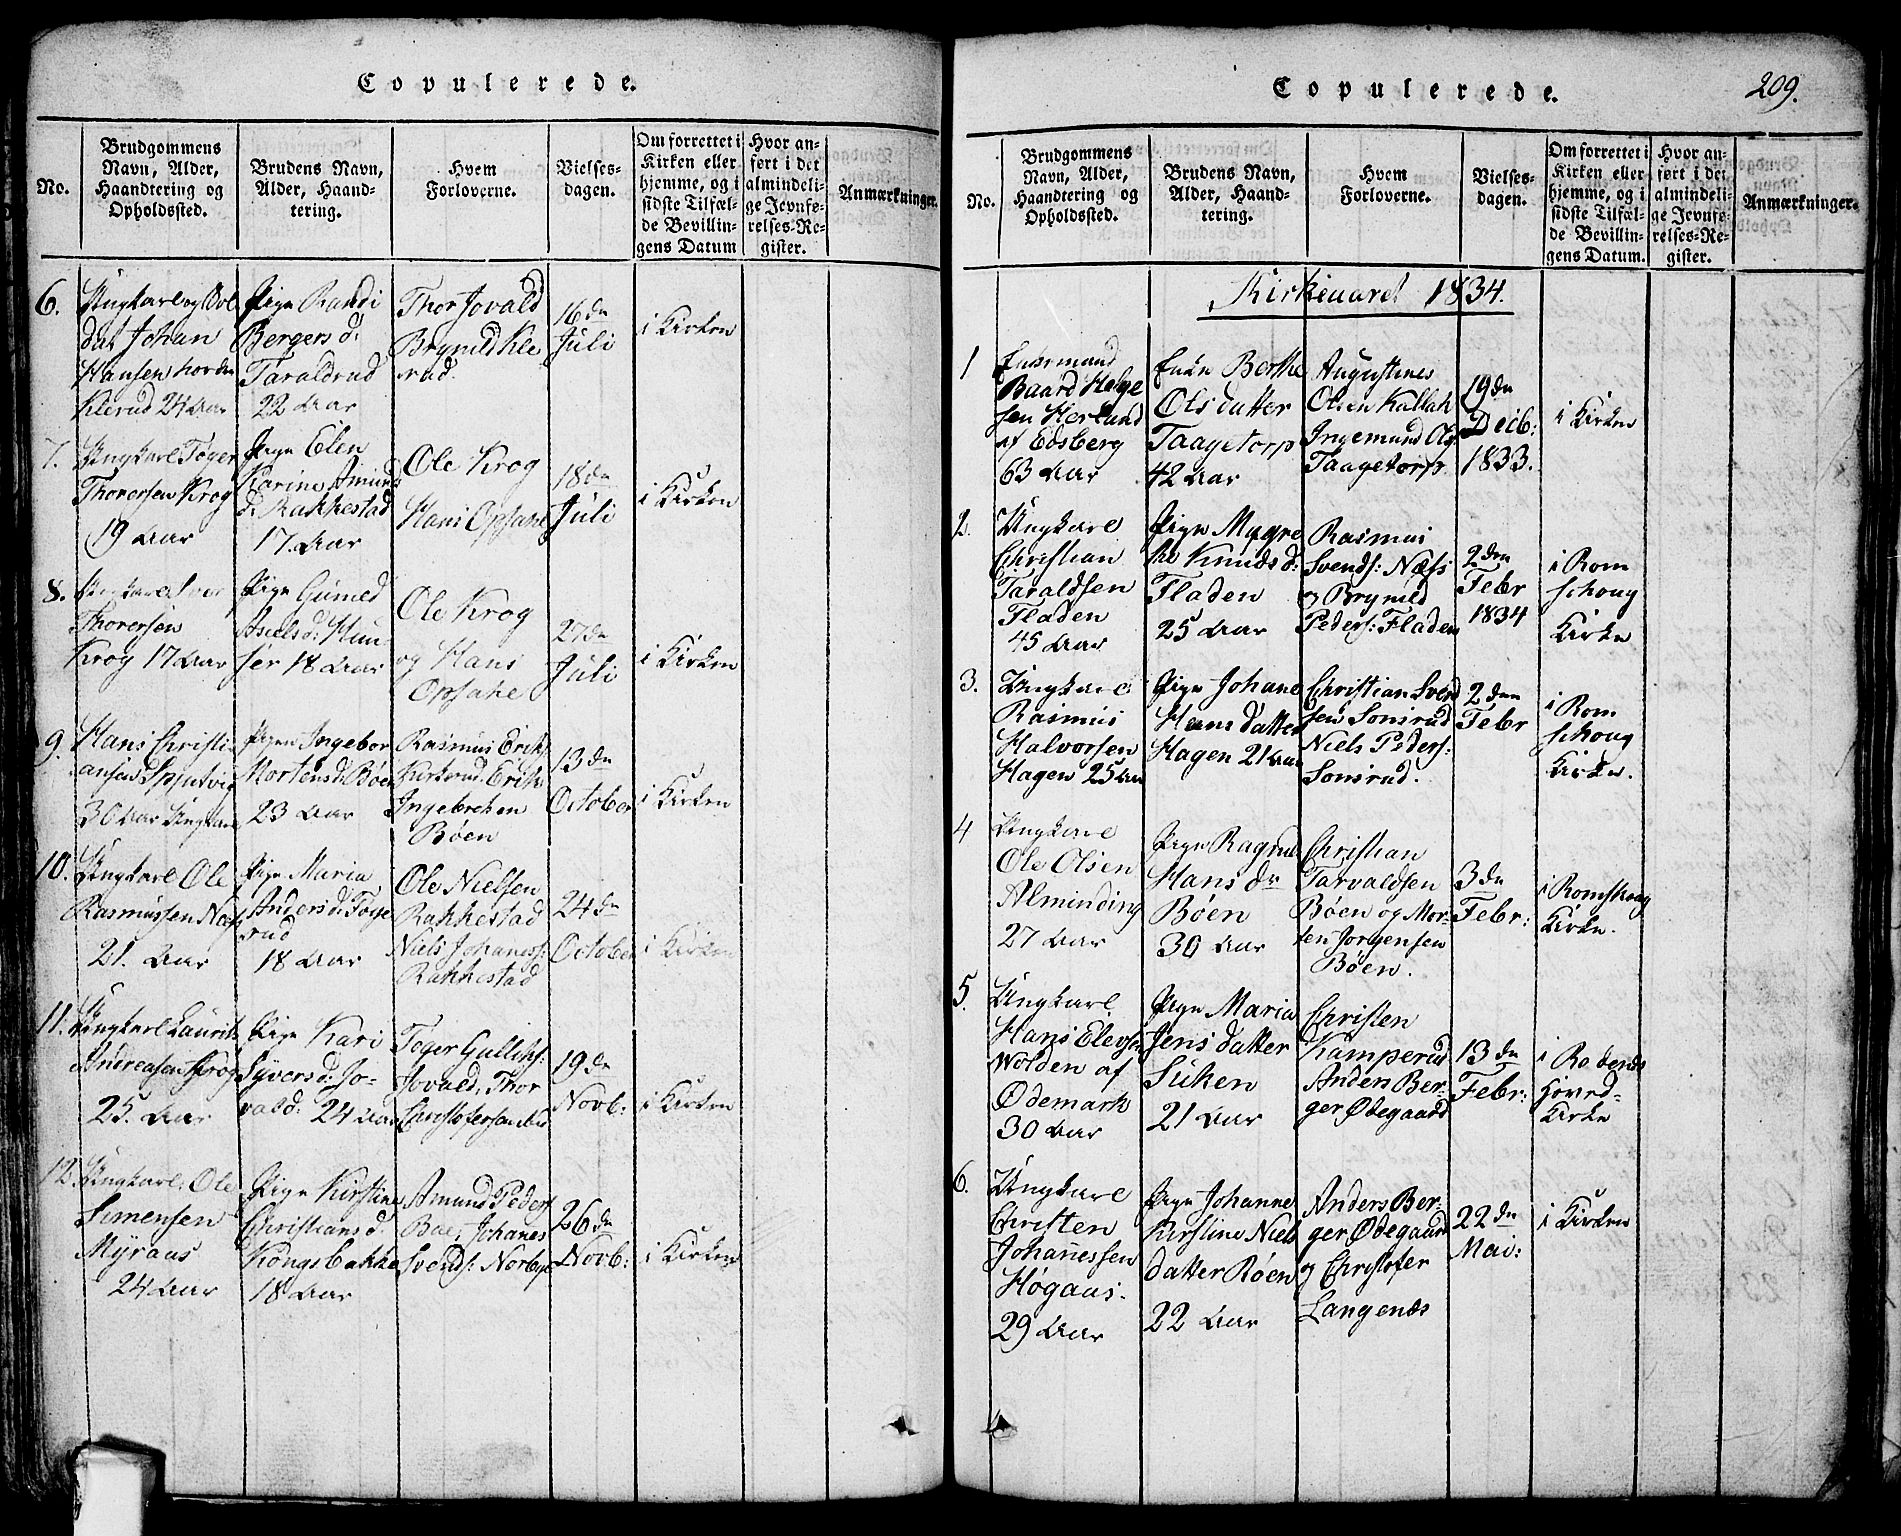 Copulerede.
No.
Brudgommens
Navn, Alder,
Haandtering og
Opholdssted.
Brudens Navn,
Alder, Haand-
tering.
Hvem
Forloverne.
Vielses-
dagen.
Om forrettet i
Kirken eller
hjemme, og i
sidste Tilfæl-
de Bevillin-
gens Datum
Hvor an-
ført i det
almindeli-
ge Jevnfø-
relses-Re-
gister.
Anmærkninger.
6.
Ungkarl og Sol
dat Johan
Hansen
Klerud 24 Aar
Pige Randi
Bergers d:
Taraldrud
22 Aar
Thor Jovald
Brynild Kle
rud.
16de
Juli
i Kirken
7.
Ungkarl Toger
Thorersen Krog
19 Aar
Pige Elen
Karine Amund
d. Rakkestad
17. Aar
Ole Krog
Hans Opsahe
18de
Juli
i Kirken
8.
Ungkarl Iver
Thorersen
Krog 17 Aar
Pige Guned
Axels d: Hun
ser 18 Aar
Ole Krog
og Hans
Opsahe
27de
Juli
i Kirken
9.
Hans Christi
ansen Spjutvig
30 Aar Ungkarl
Pigen Ingebor
Mortensd: Böen
23 Aar
Rasmus Eriks
Kirkerud. Erik
Ingebretsen
Böen
13de
October
i Kirken
10.
Ungkarl Ole
Rasmussen Næss
21. Aar
Pige Maria
Anders d: Toge
rud
18 Aar
Ole Nielsen
Rakkestad
Niels Johaness:
Rakkestad
24de
October
i Kirken
11.
Ungkarl Laurits
Andreasen Krog
25. Aar
Pige Kari
Syvers d: Jo-
vald: 24 Aar
Toger Gulliks:
Jovald, Thor
19de
Novb:
i Kirken
12.
Ungkarl Ole
Simensen
Myraas
24 Aar
Pige Kirstine
Christians d.
Kongsbakke
18 Aar
Amund Peders
Bae, Johanes
Svends: Norbye
26de
Novb:
i Kirken
Copulerede.
209.
No.
Brudgommens
Navn, Alder,
Haandtering og
Opholdssted.
Brudens Navn,
Alder, Haand-
tering.
Hvem
Forloverne.
Vielses-
dagen.
Om forrettet i
Kirken eller
hjemme, og i
sidste Tilfæl-
de Bevillin-
gens Datum.
Hvor an-
ført i det
almindeli-
ge Jevnfø-
relses-Re-
gister.
Anmærkninger.
Kirkeaaret 1834.
1
Enkemand
Baard Helge
sen Herland
af Edsberg
63 Aar
Enke Berthe
Olsdatter
Taagetorp
42 Aar
Augustines
Olsen Kallak
Ingemund Ols
Taagetorp
19de
Decb:
1833.
i Kirken
2.
Ungkarl
Christian
Taraldsen
Fladen
45 Aar
Pige Magre
the Knuds d:
Fladen
25 Aar
Rasmus
Svends: Næss
og Brynild
Peders: Fladen
2den
Febr
1834
i Rom
schoug
Kirke
3.
Ungkarl
Rasmus
Halvorsen
Hagen 25 Aar
Pige Johane
Hansdatter
Hagen 21 Aar
Christian Svend
sen Sonsrud
Niels Peders:
Sonsrud.
2den
Febr
i Rom
schoug
Kirke.
4
Ungkarl
Ole Olsen
Alminding
27 Aar
Pige Ragnil
Hans dr
Böen
30 Aar
Christian
Tarvaldsen
Böen og Mor-
ten Jorgensen
Böen.
3de
Febr:
i Romskoug
Kirke.
5.
Ungkarl
Hans Elevsen
Wolden af
Ødemark
30 Aar
Pige Maria
Jensdatter
Suken
21 Aar
Christen
Kamperud
Anders Ber-
ger Ødegaard
13de
Febr:
i Rodenes
Hoved-
Kirke
6.
Ungkarl
Christen
Johannessen
Høgaas.
29 Aar
Pige Johanne
Kirstine Niels
datter Röen
22 Aar
Anders Ber-
ger Ødegaard
og Christofer
Langenes
22de
Mai:
i Kirken